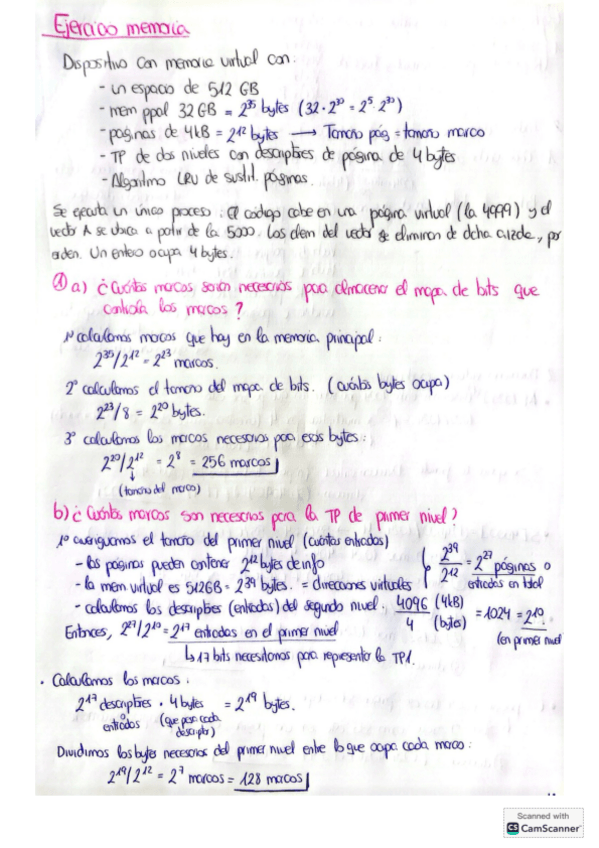 Ejercicio memoria
Dispositivo con memoria virtual con:
- un espacio de 512 GB
- mem ppal 32 GB = 2^35 bytes (32 · 2^30 = 2^5 · 2^30)
- paginas de 4kB = 2^12 bytes → Tamaño pág = tamaño marco
- TP de dos niveles con descriptores de página de 4 bytes
- Algoritmo LRU de sustit. páginas.
Se ejecuta un único proceso: El código cabe en una página virtual (la 4999) y el
vector A se ubica a partir de la 5000. Los elem del vector se eliminan de dcha a izda, por
orden. Un entero ocupa 4 bytes.
① a) ¿Cuántos marcos serán necesarios para almacenar el mapa de bits que
controla los marcos?
1º calculamos marcos que hay en la memoria principal:
2^35/2^12 = 2^23 marcos.
2º calculamos el tamaño del mapa de bits. (cuántos bytes ocupa)
2^23/8 = 2^20 bytes.
3º calculamos los marcos necesarios para esos bytes:
2^20/2^12 = 2^8 = 256 marcos
↓
(tamaño del marco)
b) ¿Cuántos marcos son necesarios para la TP de primer nivel?
1º averiguamos el tamaño del primer nivel (cuántas entradas)
- las páginas pueden contener 2^12 bytes de info
- la mem virtual es 512GB = 2^39 bytes. = direcciones virtuales
2^39/2^12 = 2^27 páginas o entradas en total
- calculamos los descriptores (entradas) del segundo nivel. 4096 (4kB) / 4 (bytes) = 1024 = 2^10.
(en primer nivel
Entonces, 2^27/2^10 = 2^17 entradas en el primer nivel
↳ 17 bits necesitamos para representar la TP1.
· Calculamos los marcos:
2^17 descriptores · 4 bytes = 2^19 bytes.
o entradas (que para cada descriptor)
Dividimos los bytes necesarios del primer nivel entre lo que ocupa cada marco:
2^19/2^12 = 2^7 marcos = 128 marcos
Scanned with
CS CamScanner